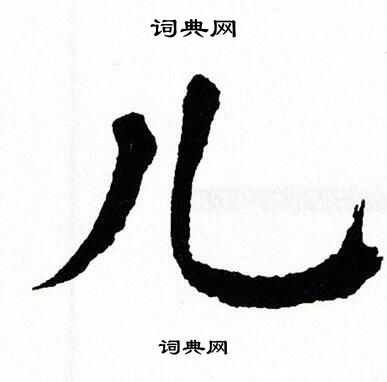 词典网
儿
词典网